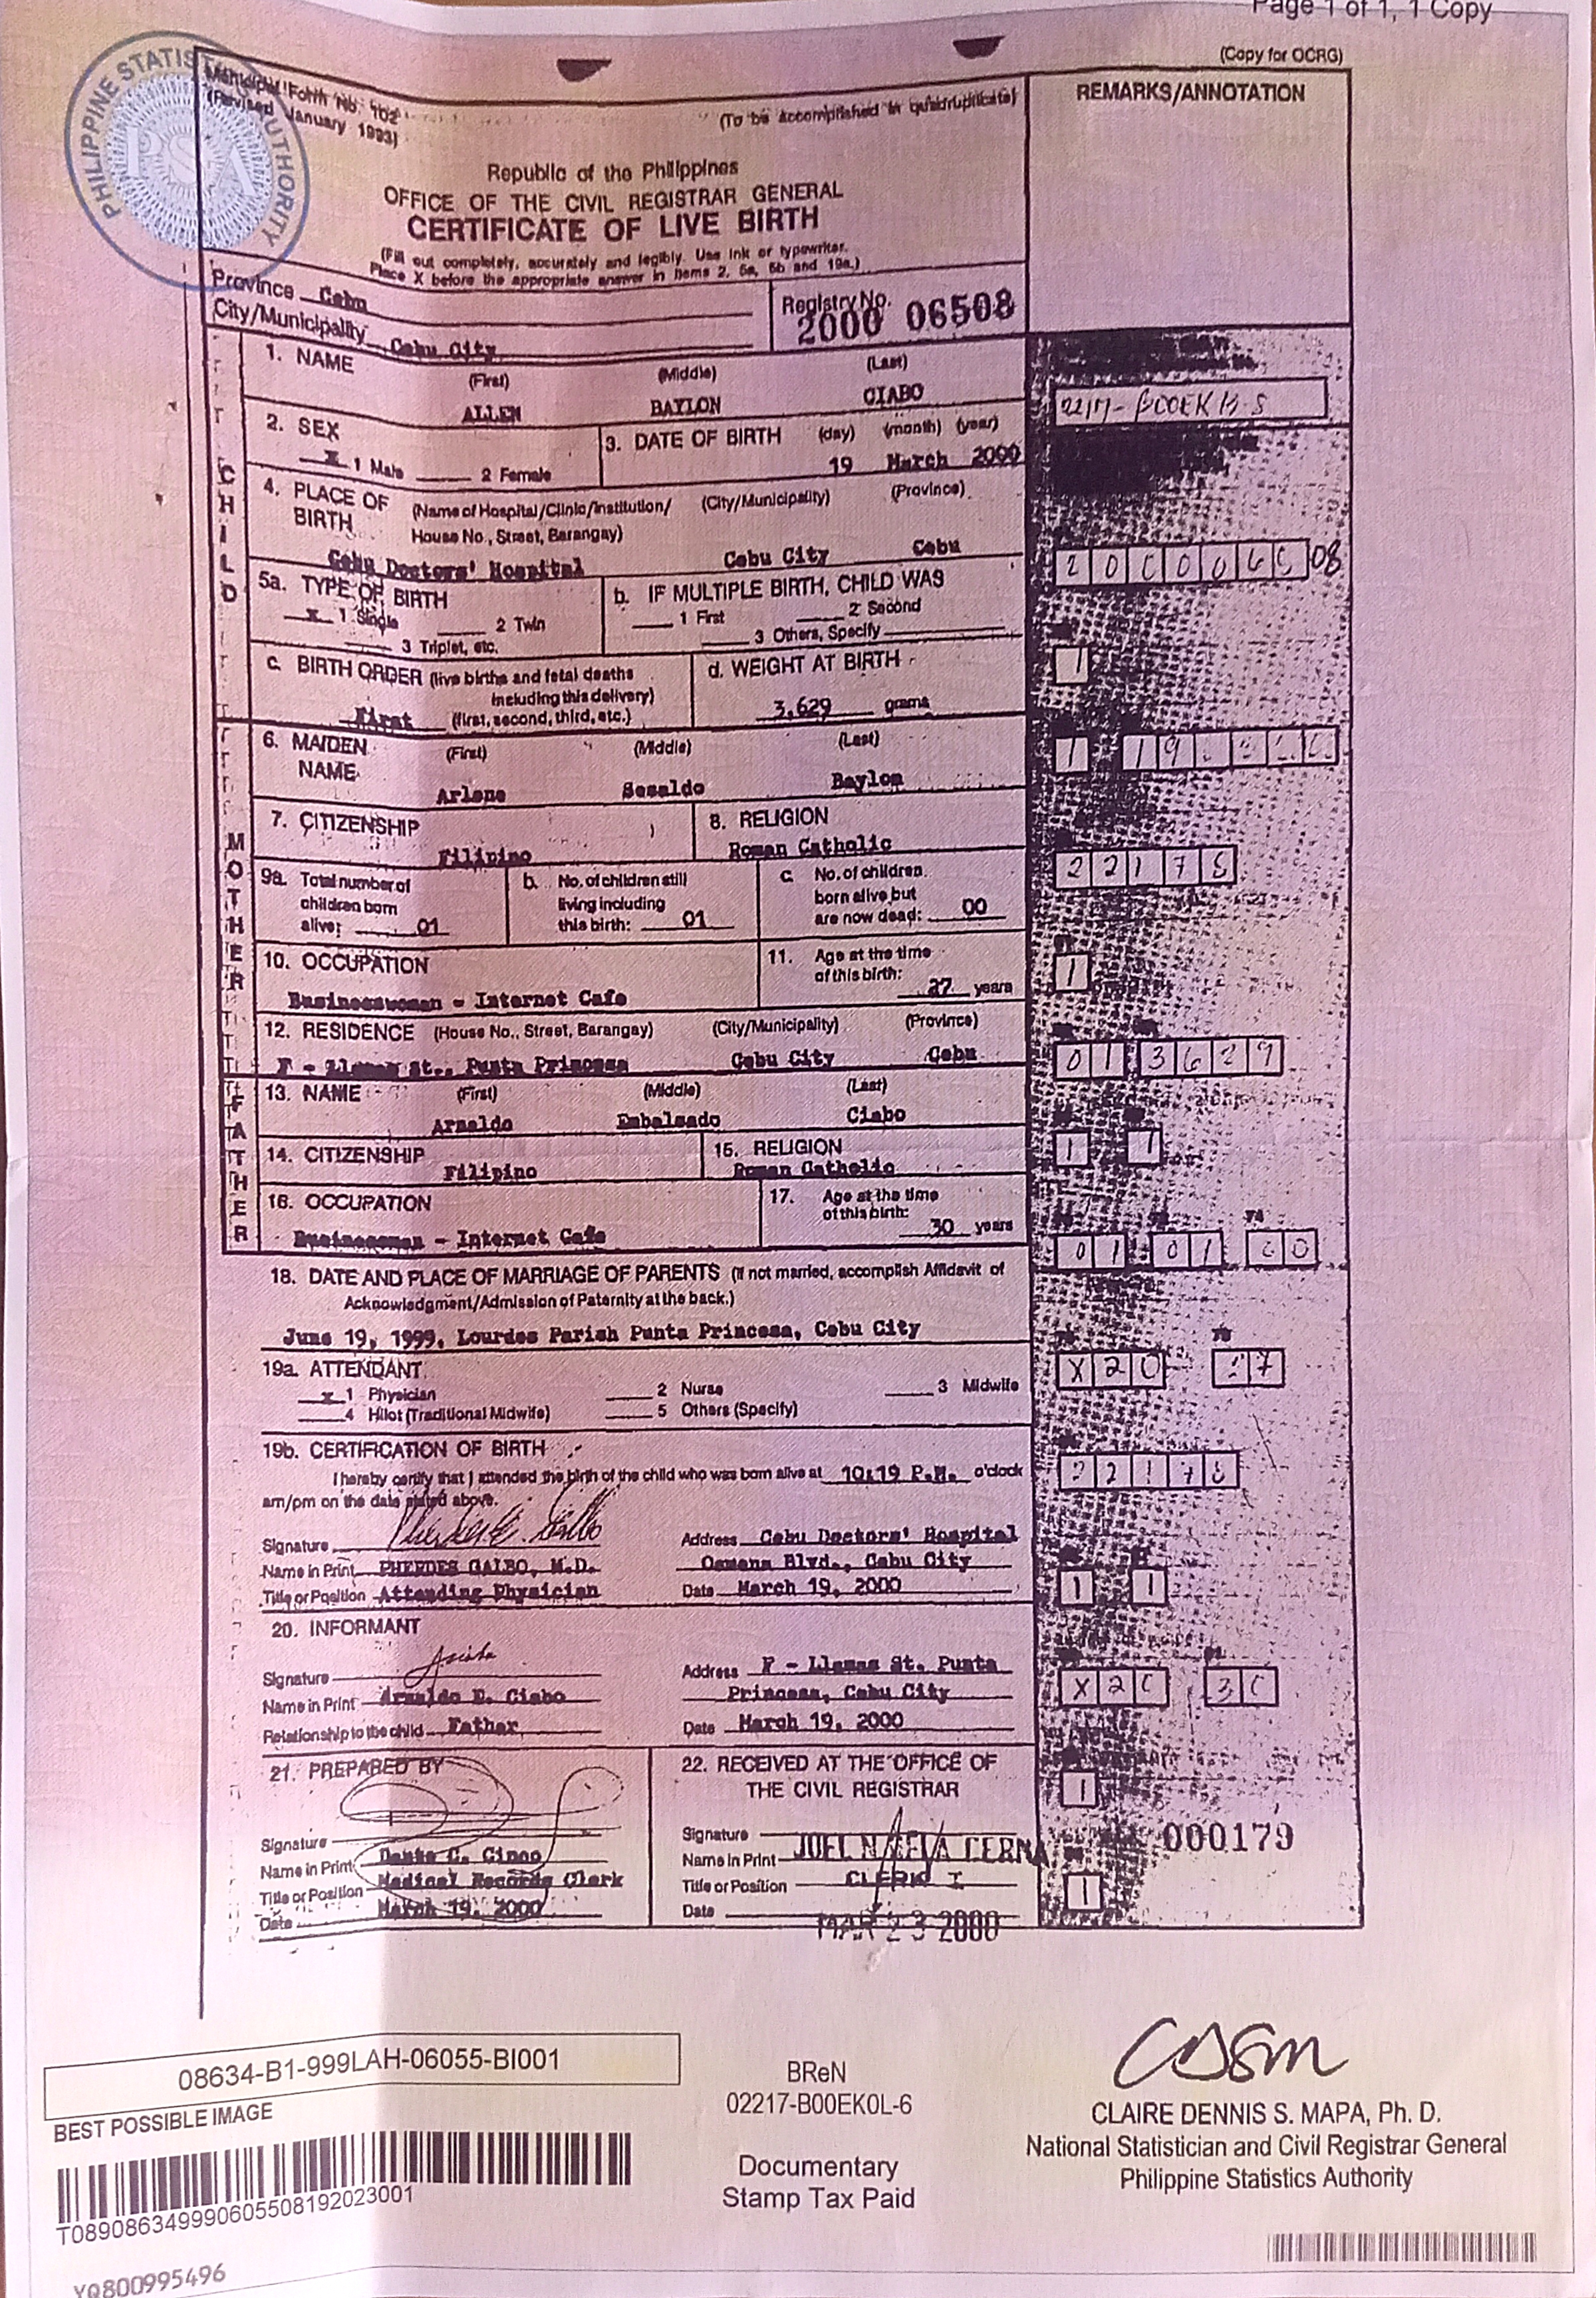 Page 1 of 1, 1 Copy
(Copy for OCRG)
PHILIPPINE STATISTICS AUTHORITY
PSA
Municipal Form No. 102
(Revised January 1993)
(To be accomplished in quadruplicate)
REMARKS/ANNOTATION
Republic of the Philippines
OFFICE OF THE CIVIL REGISTRAR GENERAL
CERTIFICATE OF LIVE BIRTH
(Fill out completely, accurately and legibly. Use ink or typewriter.
Place X before the appropriate answer in items 2, 5a, 5b and 19a.)
Province Cebu
City/Municipality Cebu City
Registry No.
2000 06508
CHILD
1. NAME (First) (Middle) (Last)
ALLEN BAYLON CIABO
2. SEX
X 1 Male 2 Female
3. DATE OF BIRTH (day) (month) (year)
19 March 2000
4. PLACE OF BIRTH (Name of Hospital/Clinic/Institution/ House No., Street, Barangay) (City/Municipality) (Province)
Cebu Doctors' Hospital Cebu City Cebu
08
5a. TYPE OF BIRTH
X 1 Single 2 Twin
3 Triplet, etc.
b. IF MULTIPLE BIRTH, CHILD WAS
1 First 2 Second
3 Others, Specify
c. BIRTH ORDER (live births and fetal deaths
including this delivery)
First (first, second, third, etc.)
d. WEIGHT AT BIRTH
3,629 grams
1
MOTHER
6. MAIDEN NAME (First) (Middle) (Last)
Arlene Baylon
1 19
7. CITIZENSHIP
Filipino
8. RELIGION
Roman Catholic
2217
9a. Total number of children born alive: 01
b. No. of children still living including this birth: 01
c. No. of children born alive but are now dead: 00
10. OCCUPATION
Businesswoman - Internet Cafe
11. Age at the time of this birth: 27 years
1
12. RESIDENCE (House No., Street, Barangay) (City/Municipality) (Province)
F - Llamas St., Punta Princesa Cebu City Cebu
01 3629
FATHER
13. NAME (First) (Middle) (Last)
Arnaldo Embalsado Ciabo
14. CITIZENSHIP
Filipino
15. RELIGION
Roman Catholic
1 1
16. OCCUPATION
Businessman - Internet Cafe
17. Age at the time of this birth:
30 years
01 01 00
18. DATE AND PLACE OF MARRIAGE OF PARENTS (If not married, accomplish Affidavit of
Acknowledgment/Admission of Paternity at the back.)
June 19, 1999, Lourdes Parish Punta Princesa, Cebu City
19a. ATTENDANT
x 1 Physician 2 Nurse 3 Midwife
4 Hilot (Traditional Midwife) 5 Others (Specify)
X20 27
19b. CERTIFICATION OF BIRTH
I hereby certify that I attended the birth of the child who was born alive at 10:19 P.M. o'clock
am/pm on the date stated above.
Signature
Name in Print PHERDES GALBO, M.D.
Title or Position Attending Physician
Address Cebu Doctors' Hospital
Osmena Blvd., Cebu City
Date March 19, 2000
1 1
20. INFORMANT
Signature
Name in Print Arnaldo E. Ciabo
Relationship to the child Father
Address F - Llamas St. Punta
Princesa, Cebu City
Date March 19, 2000
X20 30
21. PREPARED BY
Signature
Name in Print Dante C. Cinco
Title or Position Medical Records Clerk
Date March 19, 2000
22. RECEIVED AT THE OFFICE OF
THE CIVIL REGISTRAR
Signature
Name in Print JOEL CERNA
Title or Position CLERK I
Date MAR 23 2000
1
000179
1
08634-B1-999LAH-06055-BI001
BEST POSSIBLE IMAGE
T089086349990605508192023001
YQ800995496
BReN
02217-B00EK0L-6
Documentary
Stamp Tax Paid
CLAIRE DENNIS S. MAPA, Ph. D.
National Statistician and Civil Registrar General
Philippine Statistics Authority